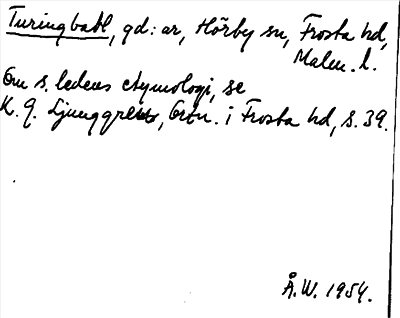 Turingbatl, gd: ar, Hörby sn, Frosta hd,
Malm. l.
Om s. ledens etymologi, se
K. G. Ljunggren, Ortn. i Frosta hd, s. 39.
Å.W. 1954.